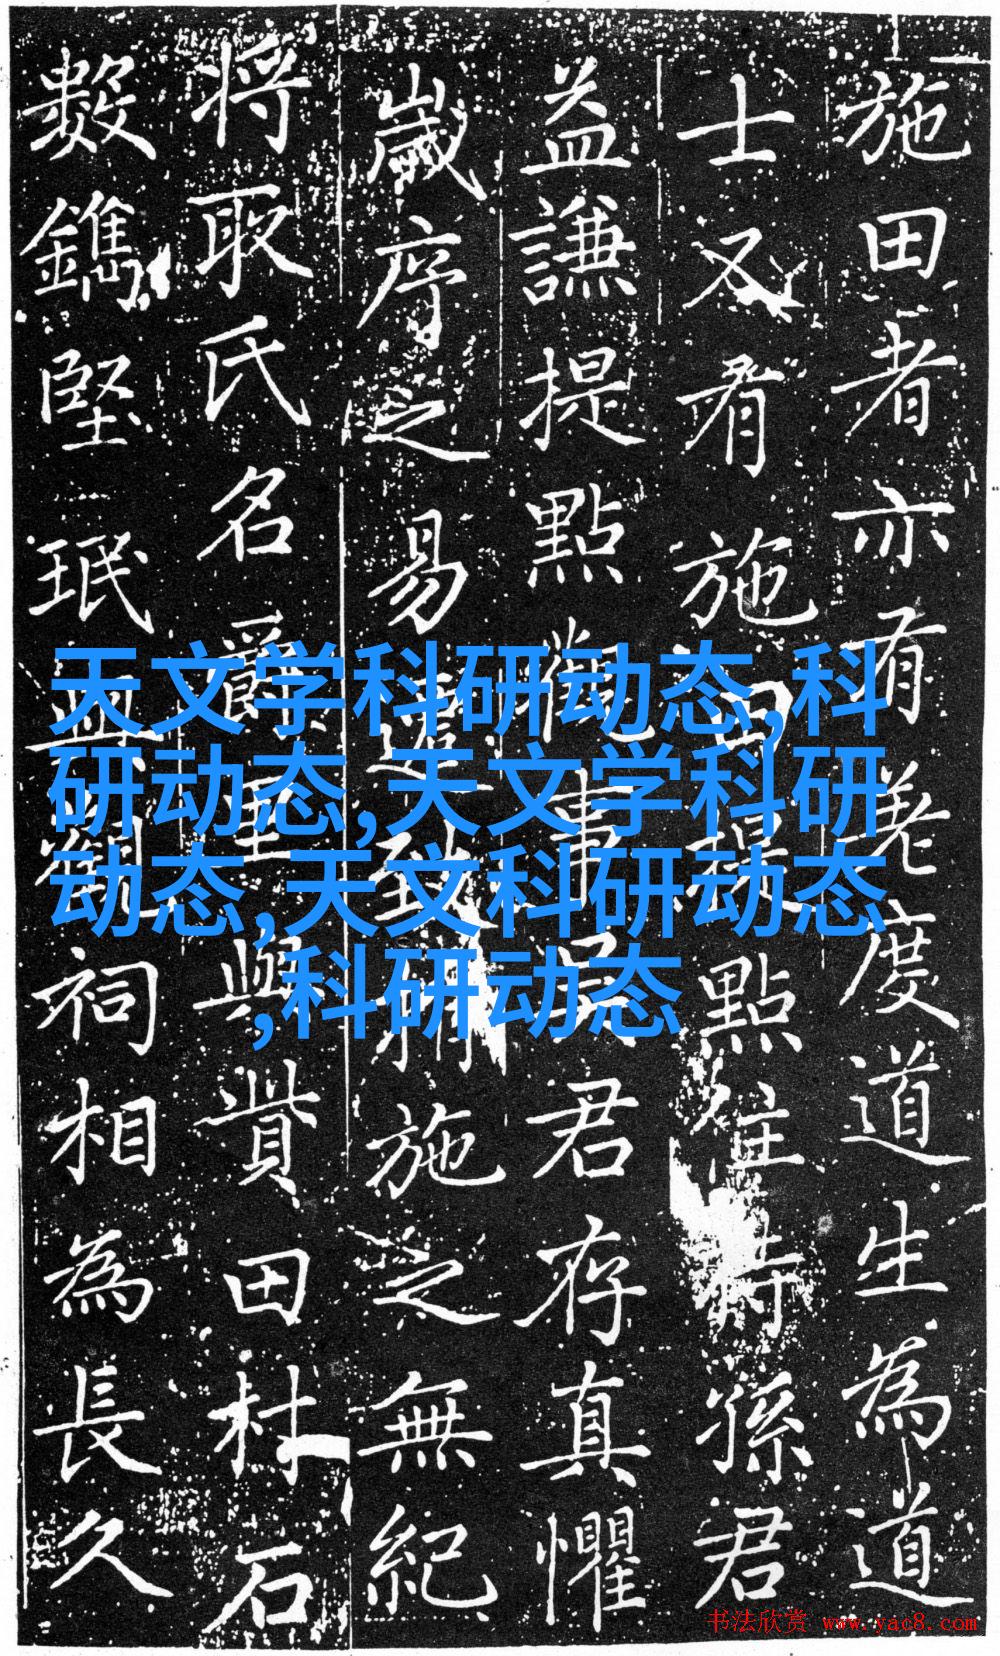 施田者亦有老度道生為道
士又施田提點住持孫君
益謙提點觀事君存真懼
歲序之易遷施之無紀
將取氏名爵里與貲田杜石
數鐫堅珉並祠相為長久
天文学科研动态,科
研动态,天文学科研
动态,天文科研动态
,科研动态
书法欣赏 www.yac8.com